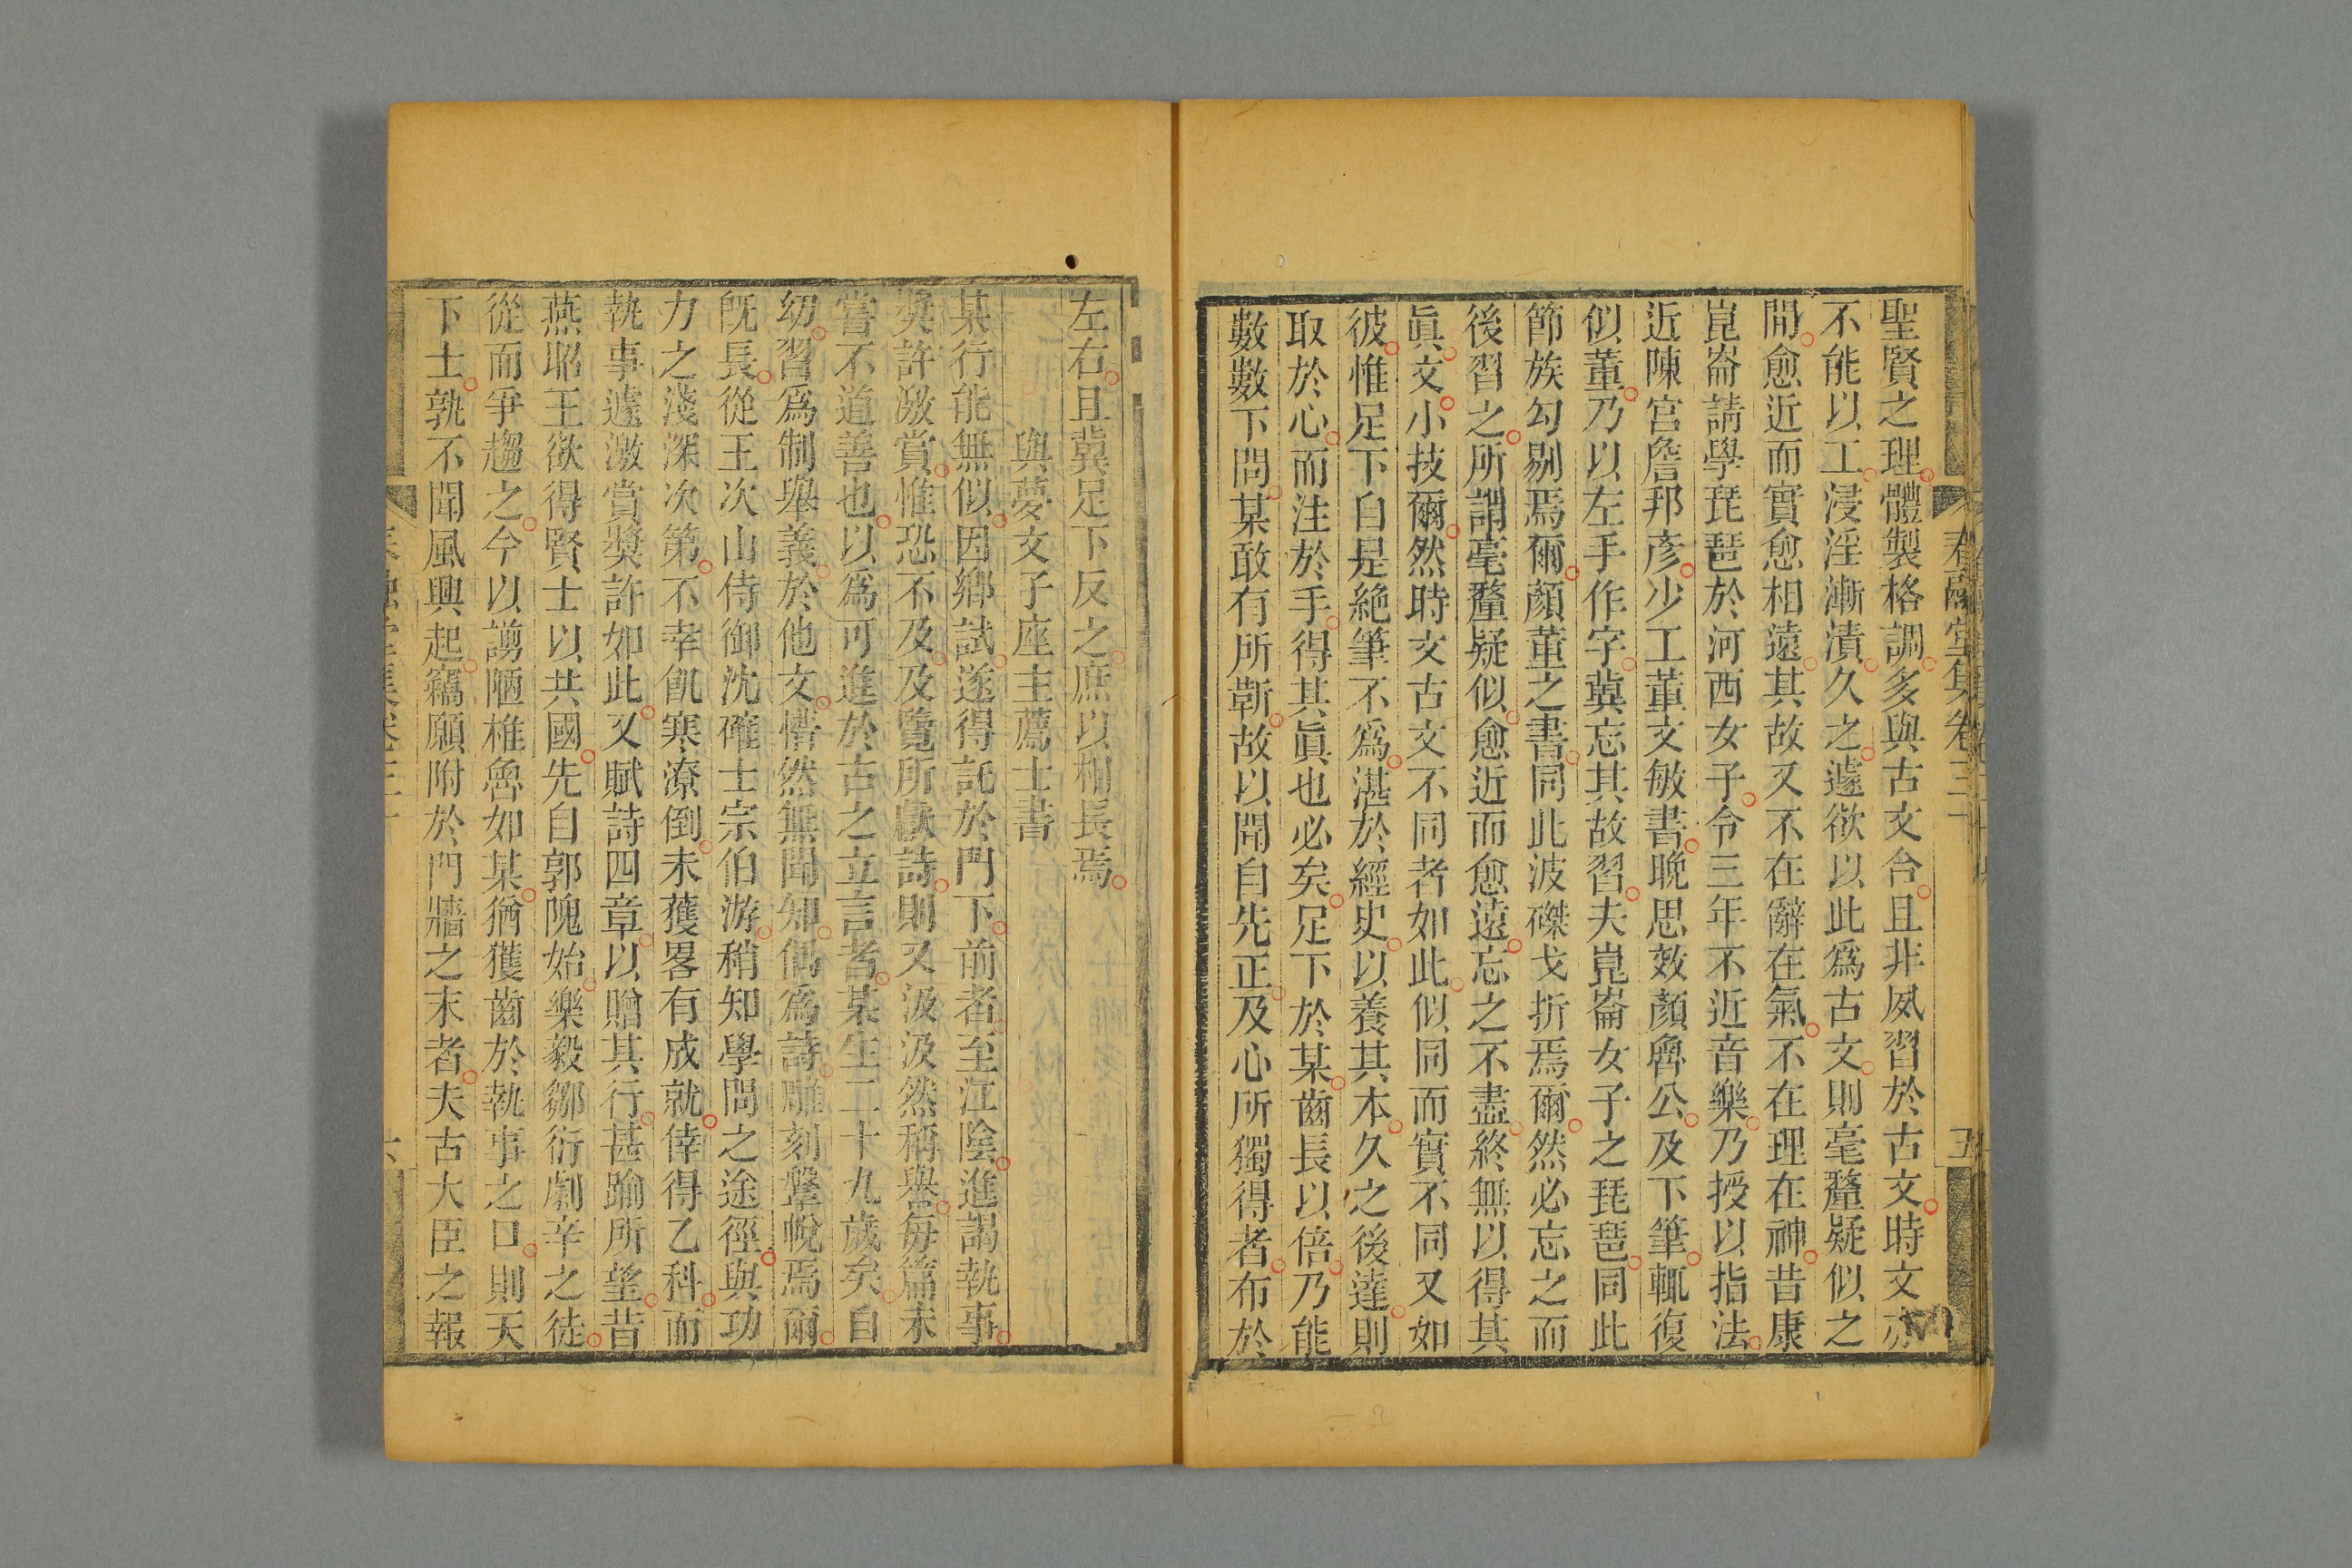 春融堂集卷三十
五
聖賢之理體製格調多與古文合且非夙習於古文時文亦
不能以工浸淫漸漬久之遽欲以此爲古文則毫釐疑似之
間愈近而實愈相遠其故又不在辭在氣不在理在神昔康
崑崙請學琵琶於河西女子令三年不近音樂乃授以指法
近陳宮詹邦彥少工董文敏書晚思效顏魯公及下筆輒復
似董乃以左手作字冀忘其故習夫崑崙女子之琵琶同此
節族勾剔焉爾顏董之書同此波磔戈折焉爾然必忘之而
後習之所謂毫釐疑似愈近而愈遠忘之不盡終無以得其
眞文小技爾然時文古文不同者如此似同而實不同又如
彼惟足下自是絕筆不爲湛於經史以養其本久之後達則
取於心而注於手得其眞也必矣足下於某齒長以倍乃能
數數下問某敢有所靳故以聞自先正及心所獨得者布於
左右且冀足下反之庶以相長焉
與夢文子座主薦士書
某行能無似因鄉試遂得託於門下前者至江陰進謁執事
奬許激賞惟恐不及及覽所獻詩則又汲汲然稱舉每篇未
嘗不道善也以爲可進於古之立言者某生二十九歲矣自
幼習爲制舉義於他文惜然無聞知偶爲詩雕刻鞶帨焉爾
旣長從王次山侍御沈確士宗伯游稍知學問之途徑與功
力之淺深次第不幸飢寒潦倒未獲畧有成就倖得乙科而
執事遽激賞奬許如此又賦詩四章以贈其行甚踰所望昔
燕昭王欲得賢士以共國先自郭隗始樂毅鄒衍劇辛之徒
從而爭趨之今以謭陋椎魯如某猶獲齒於執事之口則天
下士孰不聞風興起竊願附於門牆之末者夫古大臣之報
六